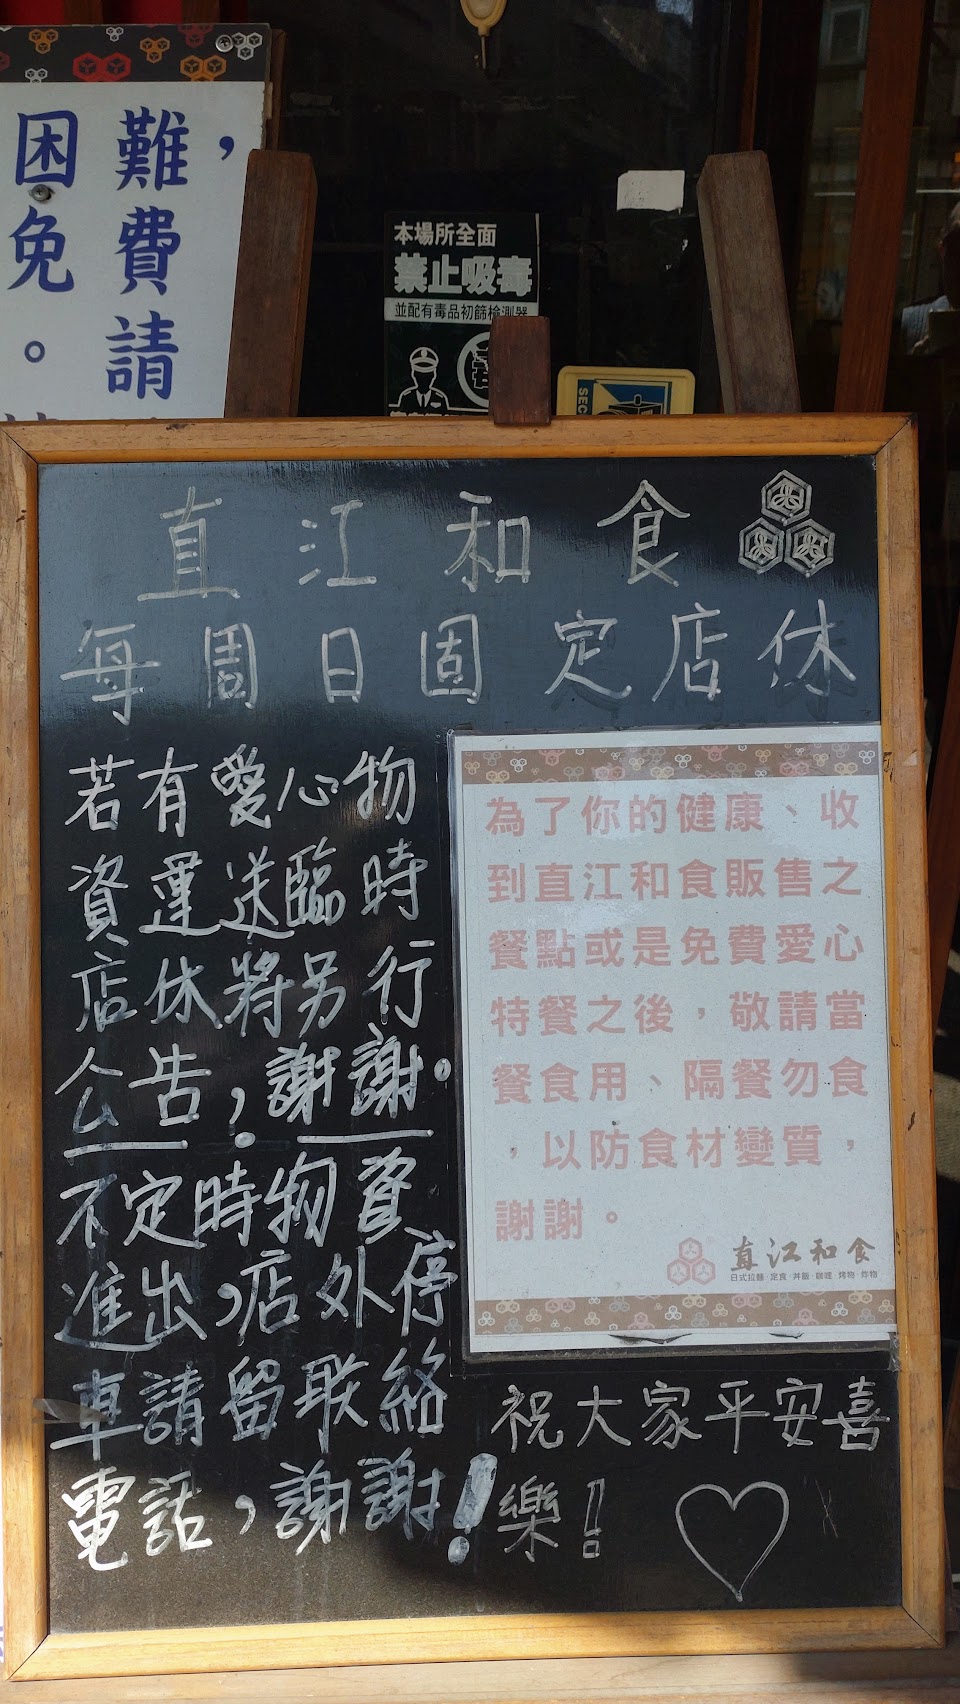 難，
費
請
困
免
。
本場所全面
禁止吸毒
並配有毒品初篩檢測器
SEC
直江和食
每周日固定店休
若有愛心物
資運送臨時
店休將另行
公告，謝謝。
不定時物資
進出，店外停
車請留联絡
電話，謝謝！
為了你的健康、收
到直江和食販售之
餐點或是免費愛心
特餐之後，敬請當
餐食用、隔餐勿食
，以防食材變質，
謝謝。
直江和食
日式拉麵·定食·丼飯·咖哩·烤物·炸物
祝大家平安喜
樂！